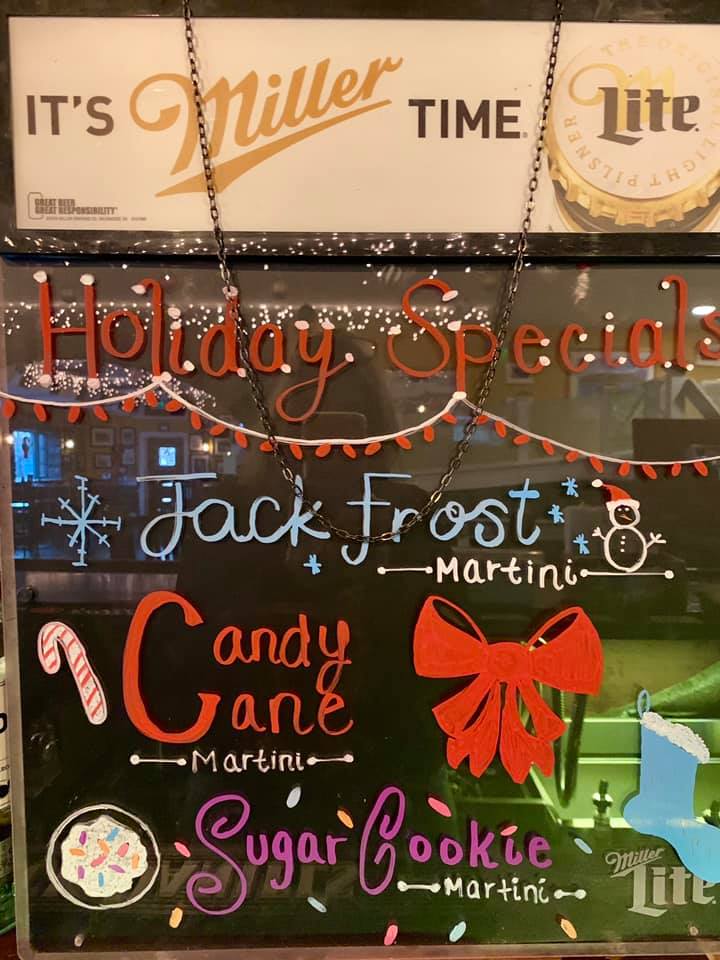 IT'S Miller TIME.
THE ORIGINAL LIGHT PILSNER
Lite
GREAT BEER
GREAT RESPONSIBILITY
Holiday Specials
Jack Frost
Martini
Candy
Cane
Martini
Sugar Cookie
Martini
Miller
Lite